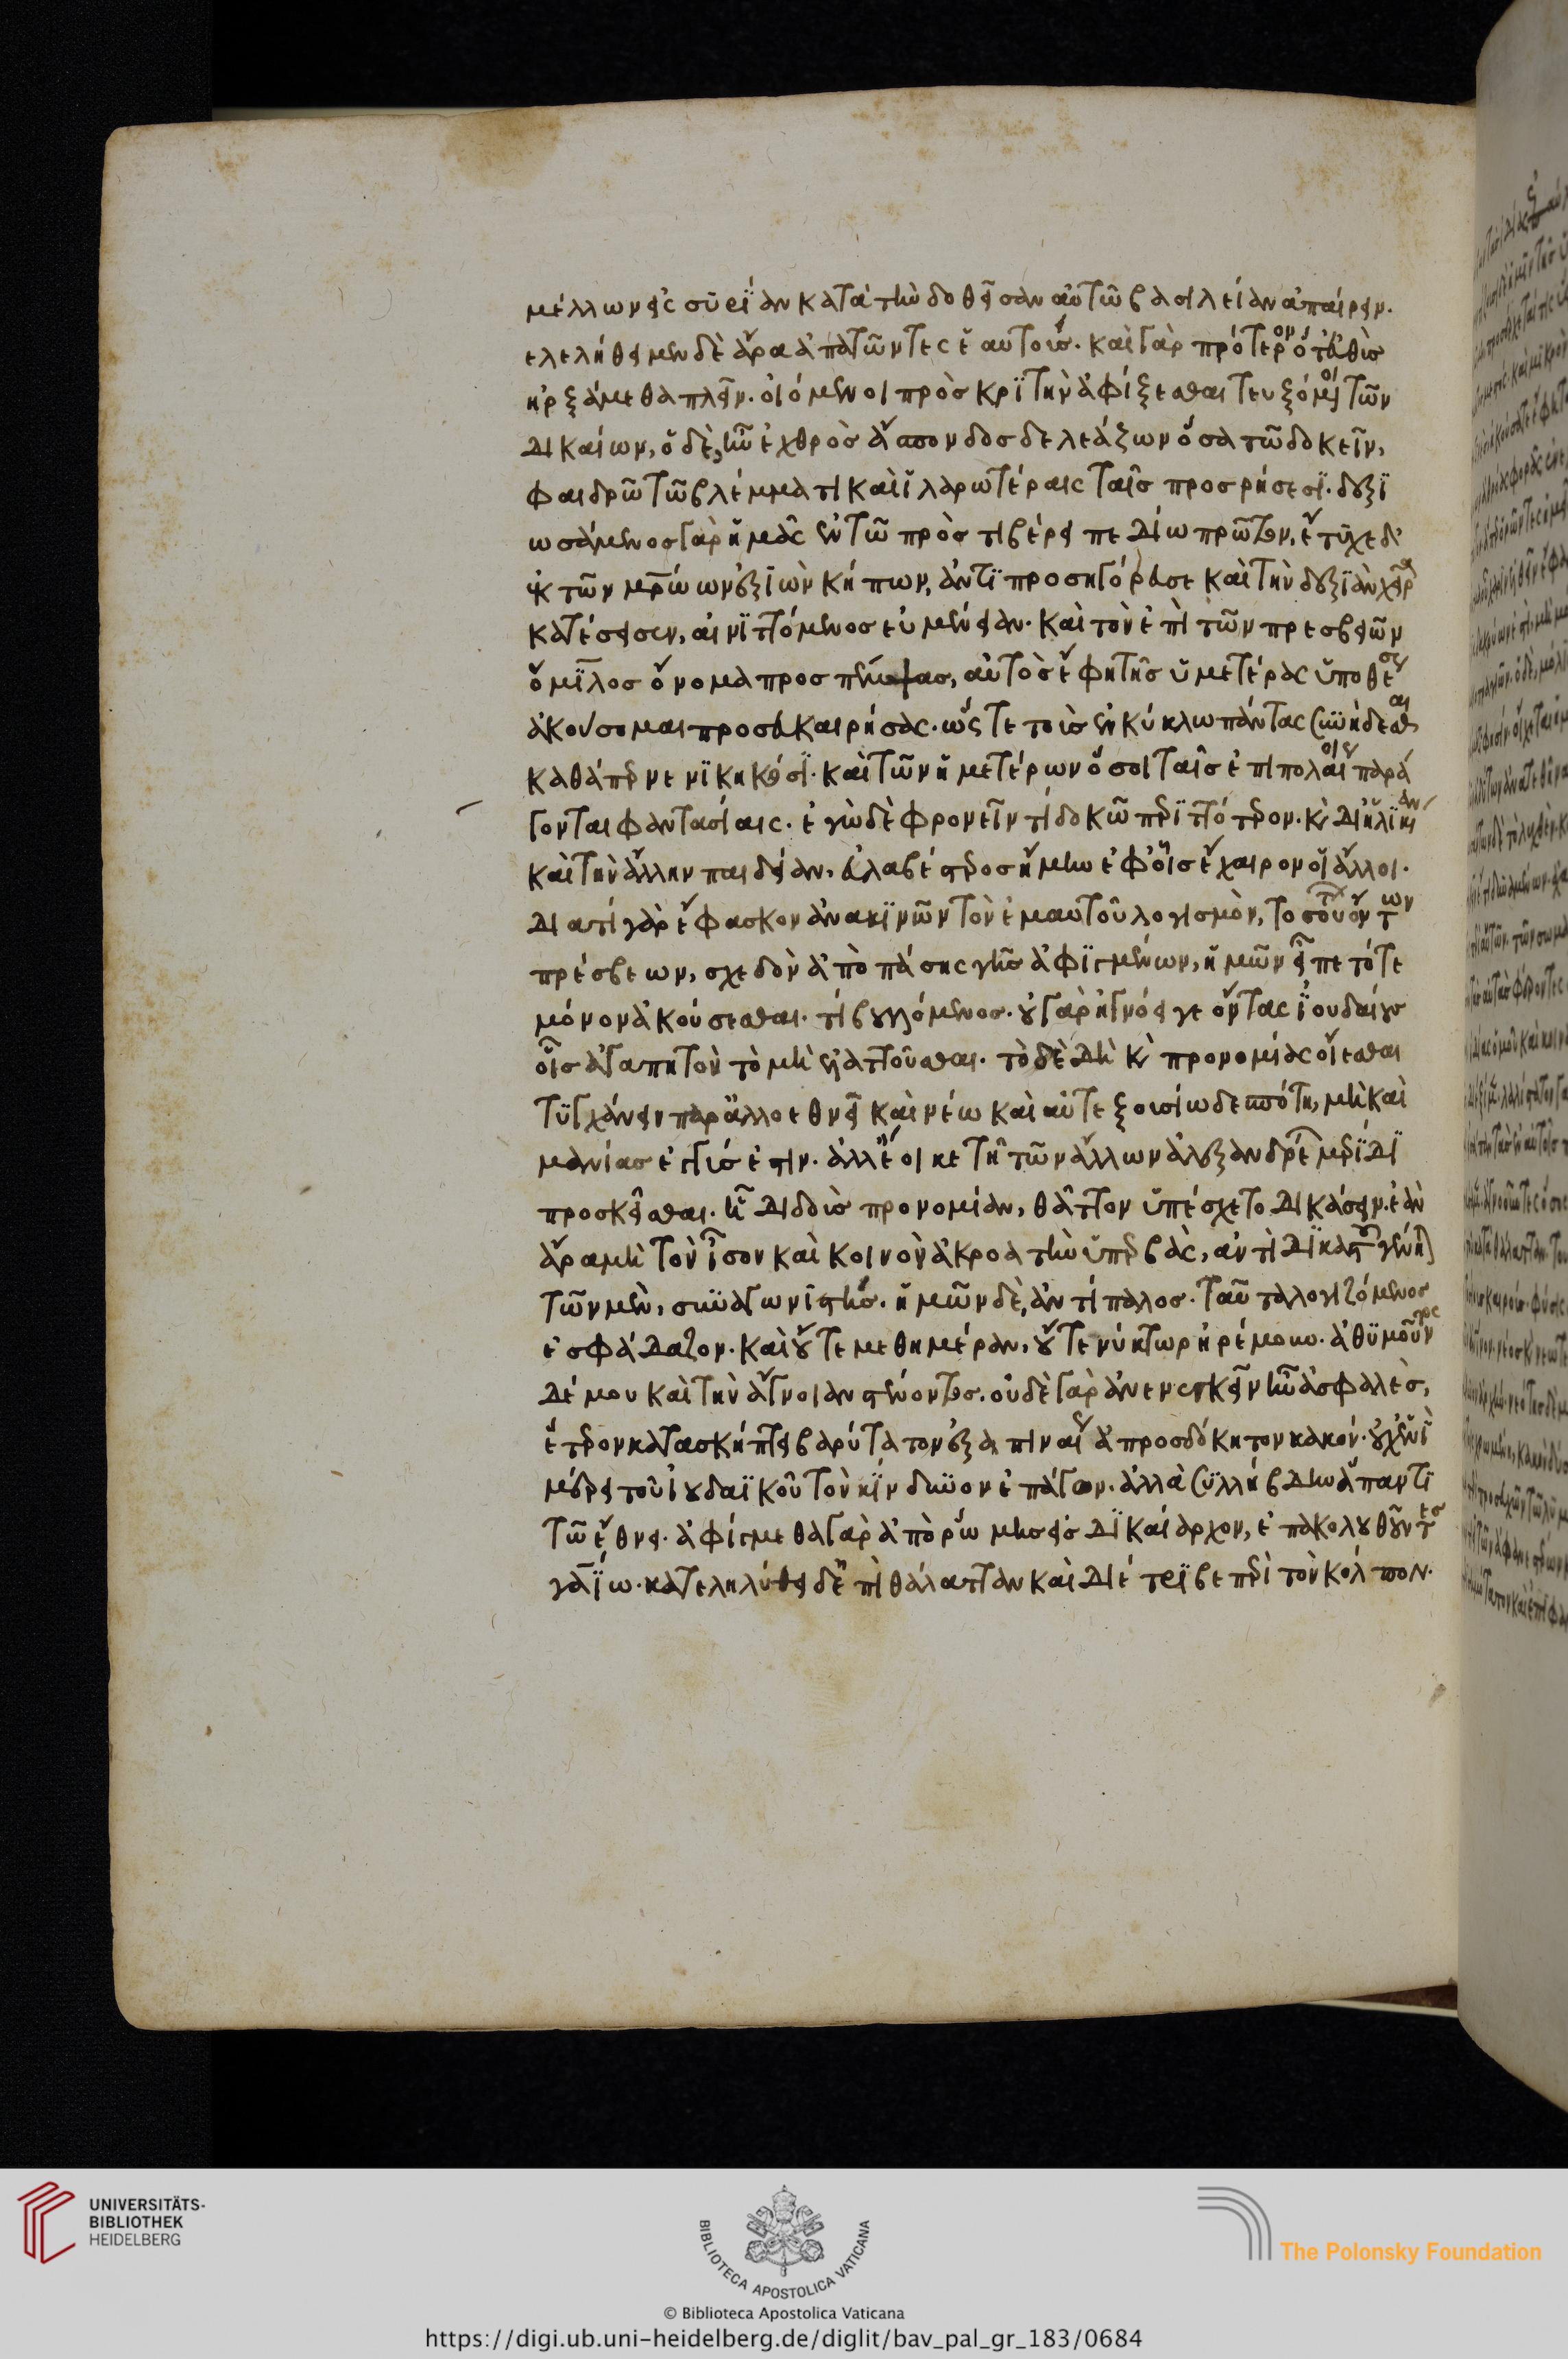 μέλλων εἰς συρίαν κατὰ τὴν δοθεῖσαν αὐτῶ βασιλείαν ἀπαίρειν.
ελελήθειμεν δὲ ἄρα ἀπατῶντες ἑαυτούς. καὶ γὰρ πρότερον ὅτ' εὐθὺς
ηρξάμεθα πλεῖν. οἰόμενοι πρὸς κριτὴν ἀφίξεσθαι τευξόμενοι τῶν
δικαίων, ὁ δὲ, ἦν ἐχθρὸς ἄσπονδος δελεάζων ὅσα τῶ δοκεῖν,
φαιδρῶ τῶ βλέμματι καὶ ἱλαρωτέραις ταῖς προσρήσεσι. δεξι
ωσάμενος γὰρ ἡμᾶς ἐν τῶ πρὸς τιβέρει πεδίω πρῶτον, ἔτυχε δ'
ἐκ τῶν μρώων ἐξιὼν κήπων, ἀντιπροσηγόρευσε καὶ τὴν δεξιὰν χεῖρα
κατέσεισεν, αἰνιττόμενος εὐμένειαν. καὶ τὸν ἐπὶ τῶν πρεσβειῶν
ὅμιλος ὄνομα προσπέμψας, αὐτὸς ἔφη τῆς ὑμετέρας ὑποθέσεως
ἀκούσομαι προσευκαιρήσας. ὥς τε τοὺς ἐν κύκλω πάντας συνήδεσθαι
καθάπερ νενικηκόσι. καὶ τῶν ἡμετέρων ὅσοι ταῖς ἐπιπολαίοις παρά
γονται φαντασίαις. ἐγὼ δὲ φρονεῖν τί δοκῶ περιττότερον. καὶ δι' ἡλικίαν
καὶ τὴν ἄλλην παιδείαν, εὐλαβέστερος ἤμην ἐφ' οἷς ἔχαιρον οἱ ἄλλοι.
διατί γὰρ ἔφασκον ἀνακινῶν τὸν ἐμαυτοῦ λογισμὸν, τοσούτων ὄντων
πρέσβεων, σχεδὸν ἀπὸ πάσης γῆς ἀφιγμένων, ἡμῶν εἶπε τότε
μόνον ἀκούσεσθαι. τί βουλόμενος. οὐ γὰρ ἠγνόει γε ὄντας ἰουδαίους
οἷς ἀγαπητὸν τὸ μὴ ἐλαττοῦσθαι. τὸ δὲ δὴ καὶ προνομίας οἴεσθαι
τυγχάνειν παρ' ἀλλοεθνεῖ καὶ νέω καὶ αὐτεξουσίω δεσπότη, μὴ καὶ
μανίας ἐγγύς ἐστιν. ἀλλ' ἔοικε τῆ τῶν ἄλλων ἀλεξανδρέων μερίδι
προσκεῖσθαι. ἧ διδοὺς προνομίαν, θᾶττον ὑπέσχετο δικάσειν. ἐὰν
ἄρα μὴ τὸν ἴσον καὶ κοινὸν ἀκροατὴν ὑπερβὰς, αντὶ δικαστοῦ γένηται
τῶν μὲν, συναγωνιστής. ἡμῶν δὲ, ἀντίπαλος. ταῦτα λογιζόμενος
ἐσφάδαζον. καὶ οὔτε μεθημέραν, οὔτε νύκτωρ ἠρέμουν. ἀθυμοῦντος
δέ μου καὶ τὴν ἄγνοιαν στένοντος. οὐδὲ γὰρ ἀνενεγκεῖν ἦν ἀσφαλὲς,
ἕτερον κατασκήπτει βαρύτατον ἐξαπιναίως ἀπροσδόκητον κακόν. οὐχ ἑνὶ
μέρει τοῦ ἰουδαϊκοῦ τὸν κίνδυνον ἐπάγον. ἀλλὰ συλλήβδην ἅπαντι
τῶ ἔθνει. ἀφίγμεθα γὰρ ἀπὸ ῥώμης εἰς δικαίαρχον, ἐπακολουθοῦντες
γαΐω. κατεληλύθει δὲ ἐπὶ θάλατταν καὶ διέτριβε περὶ τὸν κόλπον.
UNIVERSITÄTS-
BIBLIOTHEK
HEIDELBERG
BIBLIOTECA APOSTOLICA VATICANA
The Polonsky Foundation
© Biblioteca Apostolica Vaticana
https://digi.ub.uni-heidelberg.de/diglit/bav_pal_gr_183/0684